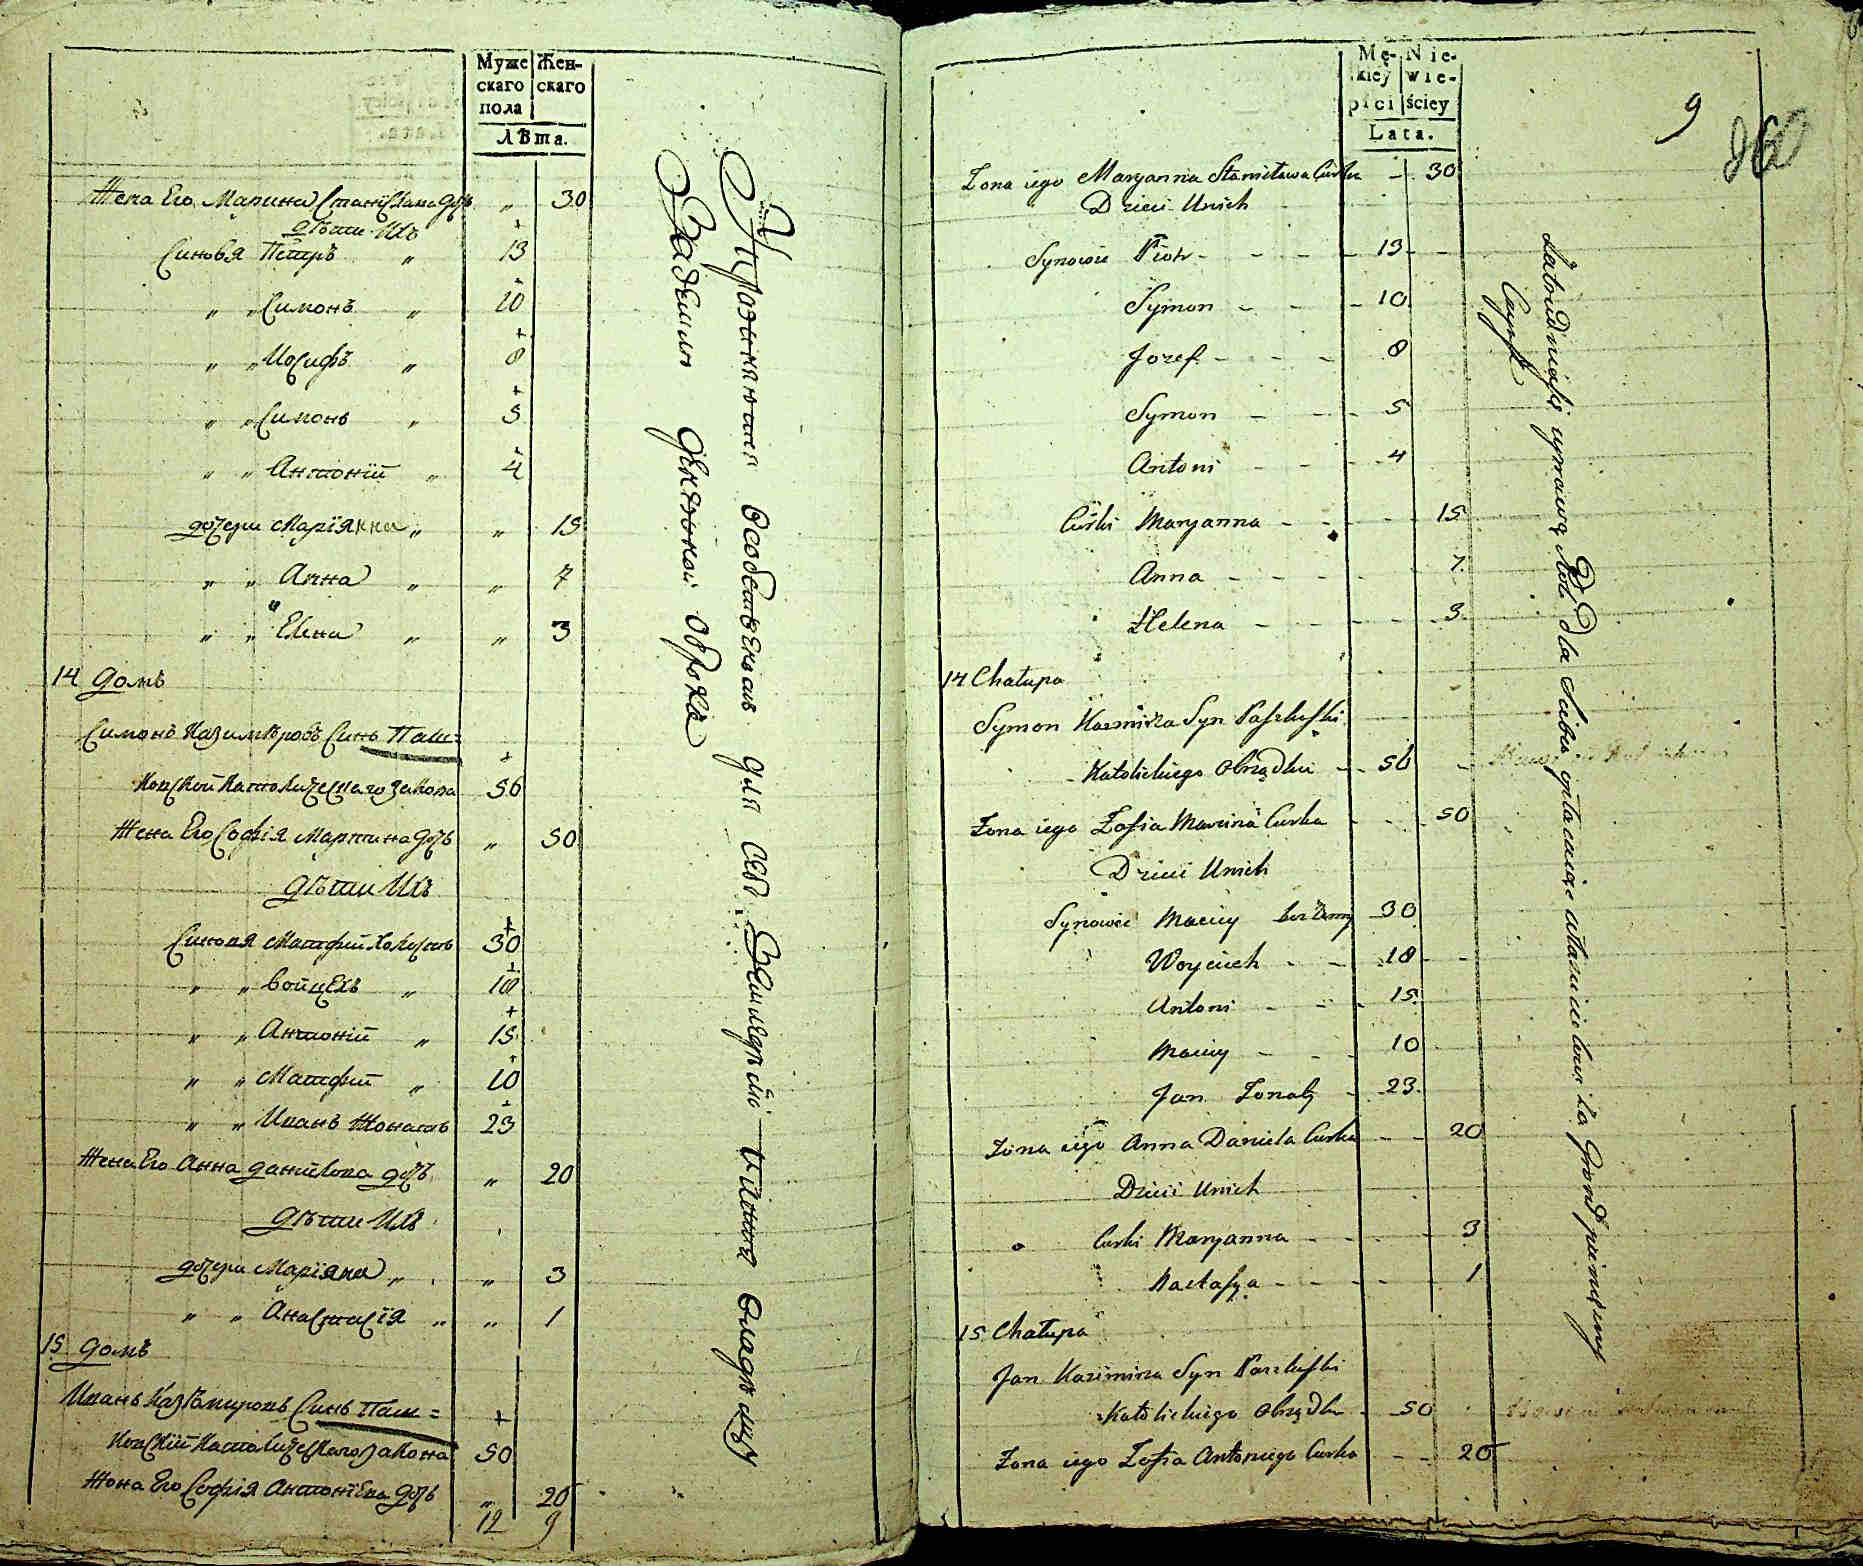 Муже Жен-
скаго скаго
пола
лѣта.
Жена Его Марина Станислава дочь „ 30
дѣти Ихъ
Синовя Петръ „ 13
„ „ Симонъ „ 10
„ „ Иосифъ „ 8
„ „ Симонъ „ 5
„ „ Антоній „ 4
дочери Маріянна „ „ 15
„ „ Анна „ „ 7
„ „ Елена „ „ 3
14 домъ
Симонъ Казимѣровъ Синъ Паш=
ковской Католическаго Закона 56
Жена Его Софія Мартина дочь „ 50
дѣти Ихъ
Синовя Матфий Холостъ 30
„ „ Войцехъ „ 18
„ „ Антоній „ 15
„ „ Матфий „ 10
„ „ Иванъ Жонатъ 23
Жена Его Анна данилова дочь „ 20
дѣти Ихъ
дочери Маріяна „ „ 3
„ „ Анастасія „ „ 1
15 домъ
Иванъ Казѣмировъ Синъ Паш=
ковский Католическаго Закона 50
Жона Его Софія Антонѣева дочь „ 20
12 9
для себѣ
За землю денежной оброкъ
Mę- Nie-
kiey wie-
płci ściey
Lata.
9
260
Zona iego Maryanna Stanisława Curka - 30
Dzieci Unich
Synowie Piotr - - - - 13 -
Symon - - - 10
Jozef - - - 8
Symon - - - 5
Antoni - - - 4
Curki Maryanna - - - - 15
Anna - - - - - 7
Helena - - - - - 3
14 Chałupa
Symon Kazmirza Syn Paszkuski
Katolickiego Obrządku - 56 -
Zona iego Zofia Marcina Curka - - - 50
Dzieci Unich
Synowie Maciey bez Zenny 30
Woyciech - - 18 - -
Antoni - - - 15
Maciey - - - 10
Jan Zonaty - 23
Zona iego Anna Daniela Curka - - 20
Dzieci Unich
Curki Maryanna - - - - 3
Nastaszya - - - - - 1
15 Chałupa
Jan Kazimirza Syn Paszkuski
Katolickiego Obrządku - 50
Zona iego Zofia Antoniego Curka - - 20
Zatrudniaią się uprawą Roli dla Siebie opłacaiąc właścicielowi za Grond pieniężny
Czynsz